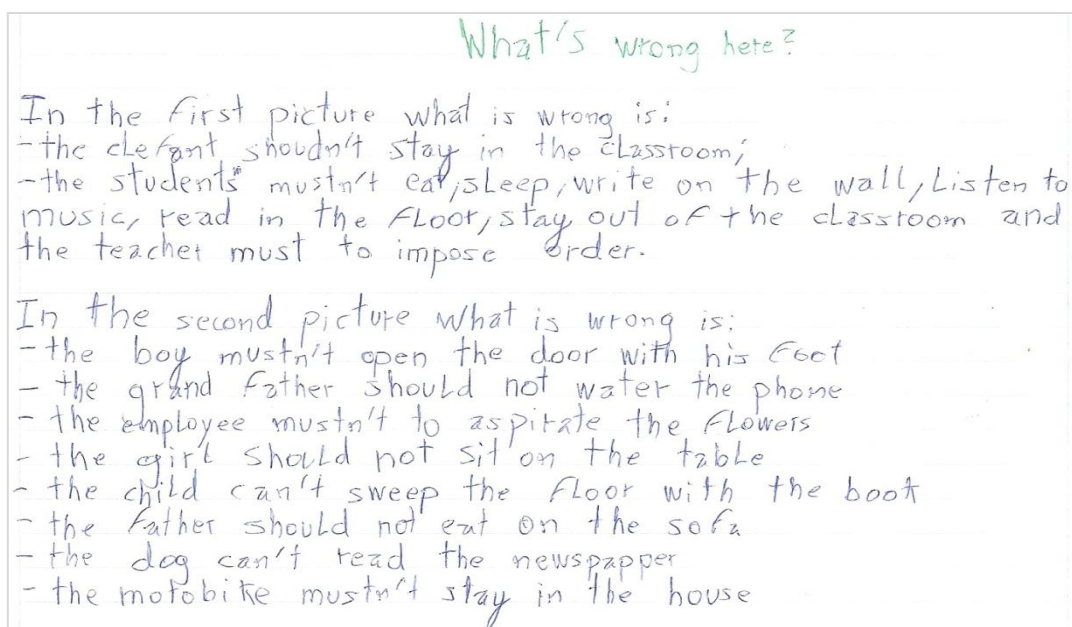 What's wrong here?
In the first picture what is wrong is:
-the elefant shoudn't stay in the classroom;
-the students mustn't eat, sleep, write on the wall, Listen to
music, read in the floor, stay out of the classroom and
the teacher must to impose order.
In the second picture what is wrong is:
-the boy mustn't open the door with his foot
- the grand father should not water the phone
- the employee mustn't to aspirate the flowers
- the girl should not sit on the table
- the child can't sweep the floor with the book
- the father should not eat on the sofa
- the dog can't read the newspapper
- the motobike mustn't stay in the house